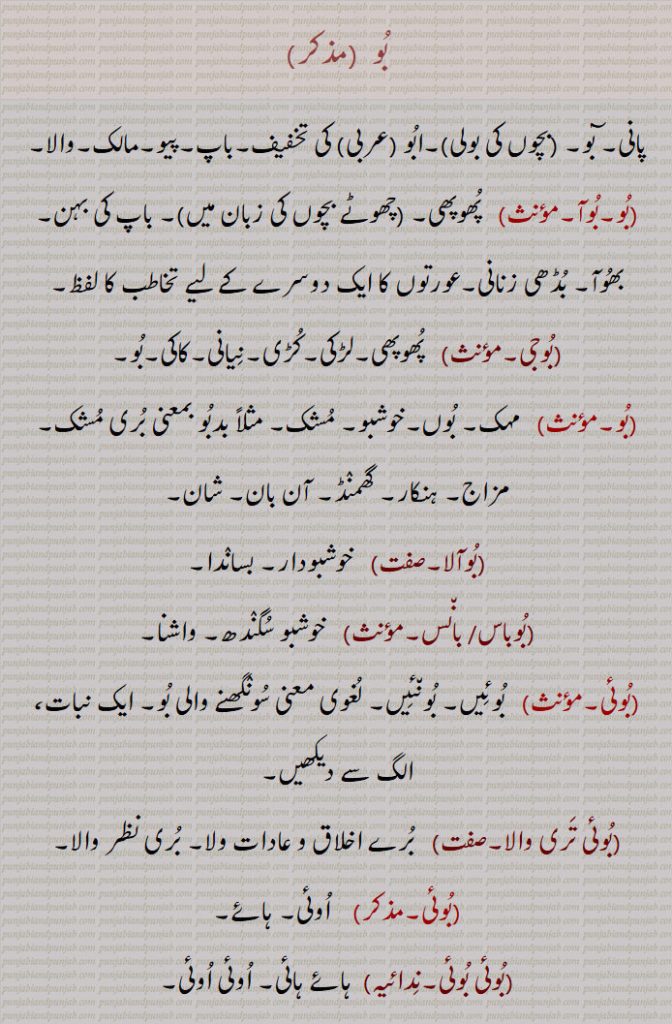 بُو (مذکر)
پانی۔ بٓو۔ (بچوں کی بولی)۔ ابُو (عربی) کی تخفیف۔ باپ۔ پیو۔ مالک۔ والا۔
(بُو۔ بُوآ۔ مؤنث) پُھوپھی۔ (چھوٹے بچوں کی زبان میں)۔ باپ کی بہن۔
بھُوآ۔ بُڈھی زنانی۔ عورتوں کا ایک دوسرے کے لیے تخاطب کا لفظ۔
(بُوجی۔ مؤنث) پُھوپھی۔ لڑکی۔ کُڑی۔ نِیانی۔ کاکی۔ بُو۔
(بُو۔ مؤنث) مہک۔ بُوں۔ خوشبو۔ مُشک۔ مثلاً بدبُو بمعنی بُری مُشک۔
مزاج۔ ہنکار۔ گھمنْڈ۔ آن بان۔ شان۔
(بُوآلا۔ صفت) خوشبودار۔ بسانْدا۔
(بُوباس/ بانْس۔ مؤنث) خوشبو سُگنْدھ۔ واشنا۔
(بُوئی۔ مؤنث) بُوئِیں۔ بُونْئِیں۔ لُغوی معنی سُونْگھنے والی بُو۔ ایک نبات،
الگ سے دیکھیں۔
(بُوئی تَری والا۔ صفت) بُرے اخلاق و عادات ولا۔ بُری نظر والا۔
(بُوئی۔ مذکر) اُوئی۔ ہائے۔
(بُوئی بُوئی۔ نِدائیہ) ہائے ہائی۔ اُوئی اُوئی۔